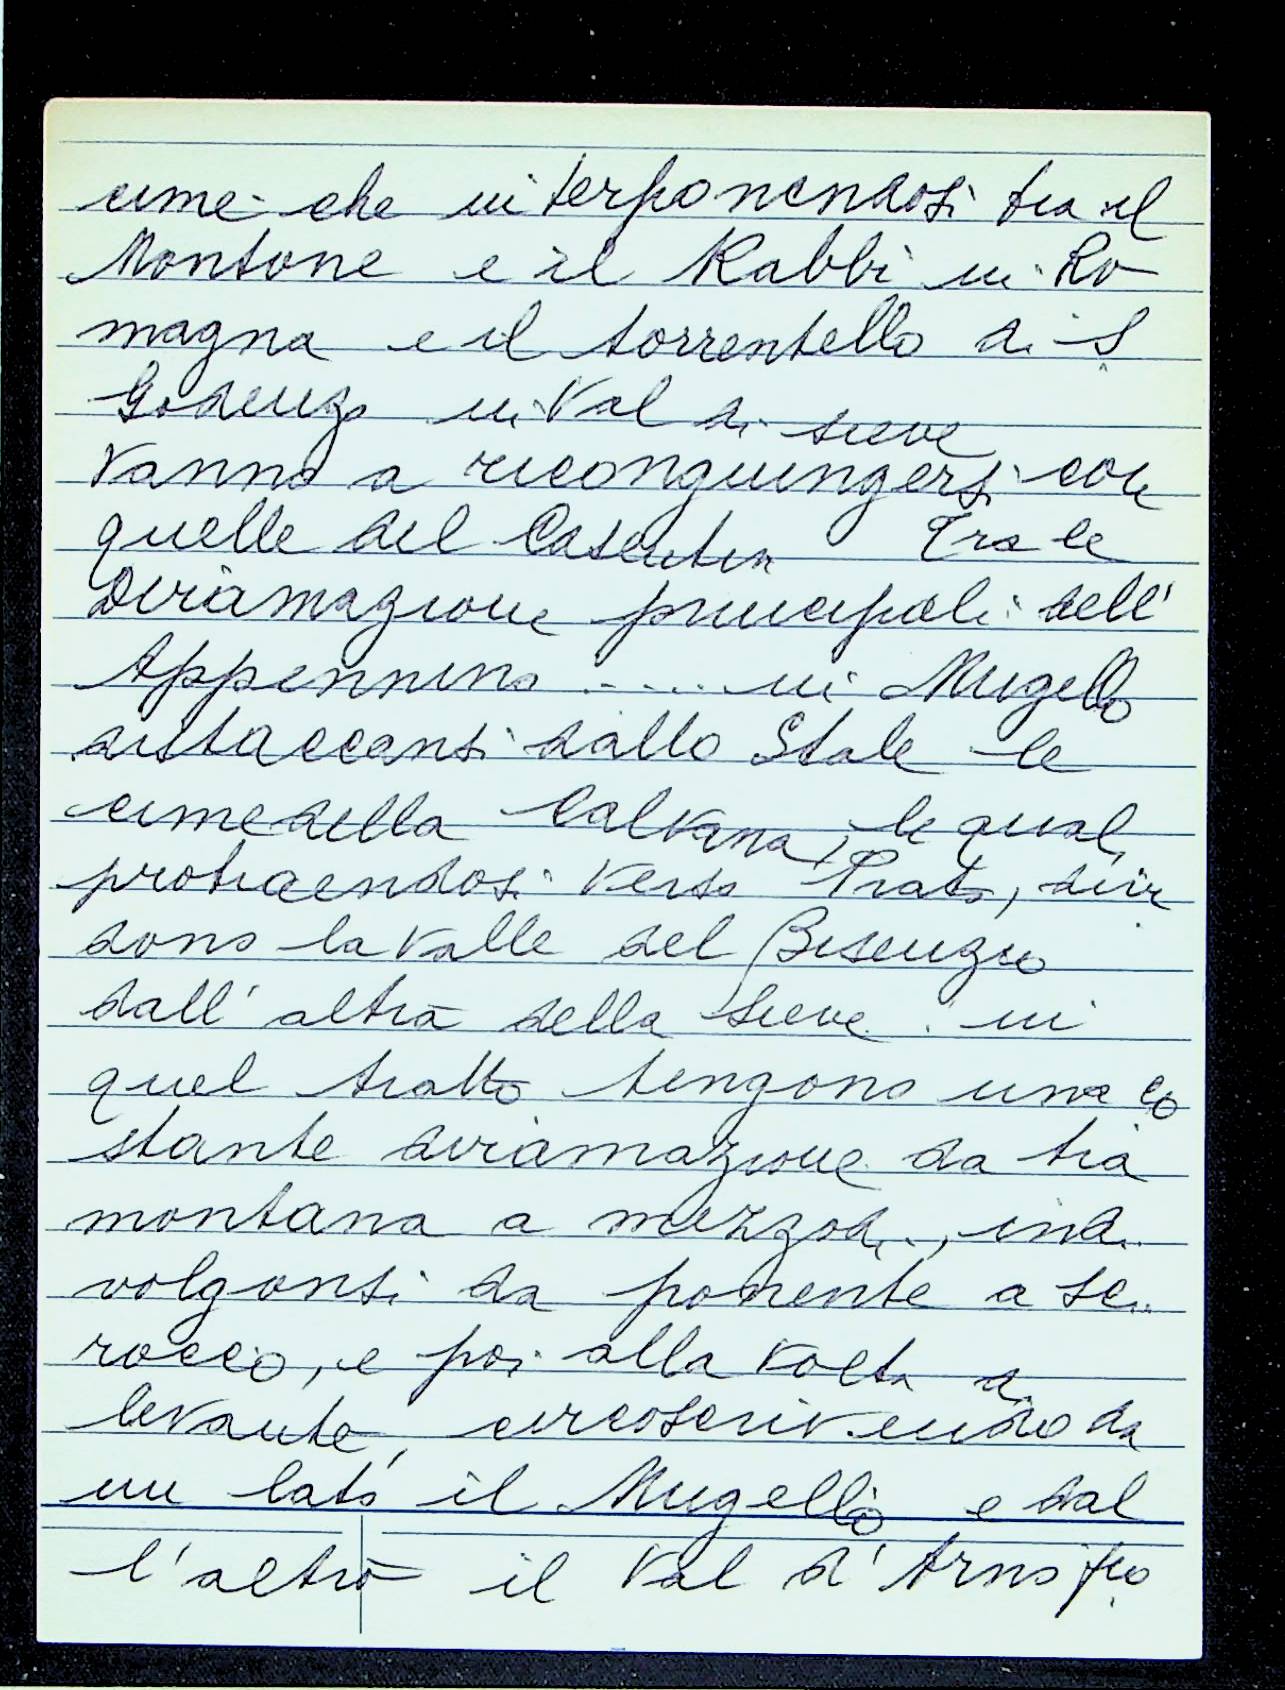 cime che interponendosi tra il
Montone e il Rabbi in Ro
magna e il torrentello di S
Godenzo in Val di Sieve
vanno a ricongiungersi con
quelle del Casentin Tra le
Diramazione principali dell'
Appennino ..... in Mugello
distaccansi dallo Stale le
cime della Calvana, le qual
protraendosi verso Prato, divi
dono la valle del Bisenzio
dall'altra della Sieve. in
quel tratto tengono una co
stante diramazione da tra
montana a mezzodi, indi
volgonsi da ponente a sci
rocco, e poi alla volta di
levante, circoscrivendo da
un lato il Mugello e dal
l'altro il Val d'Arno fio